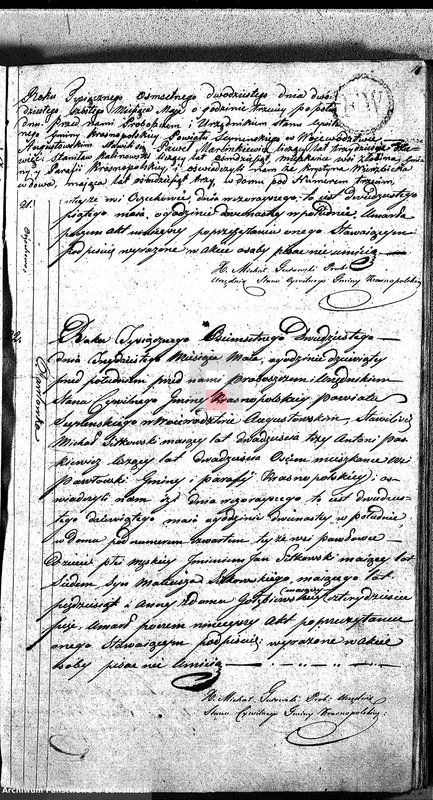 Roku Tysiącznego Osmsetnego dwódziestego dnia dwó
dziestego szóstego Miesiąca Maja o godzinie trzeciey po połu
dniu Przed nami Proboszczem i Urzędnikiem stanu Cywil
nego Gminy Krasnopolskiey Powiatu Seyneńskiego w Województwie
Augustowskim stawił się Paweł Marcinkiewicz liczący lat trzydzieści
i Stanisław Kalinowski liczący lat pięndziesiąt
Parafii Krasnopolskiey i oświadczyli nam że Krystyna
wdowa maiąca lat pięndziesiąt trzy, w domu pod Numerem trzecim
teyże wsi dnia wczorayszego, to iest dwudziestego
piątego maia, o godzinie dwunastey w południe, Umarła
poczem akt ninieyszy po przeczytaniu onego Stawaiącym
podpisali wyrażone w akcie osoby pisać nie umieią
X. Michał Gutowski Prob:
Urzędnik Stanu Cywilnego Gminy Krasnopolskiey
21.
22.
Pawłówka
Roku Tysiącznego Osimsetnego Dwudziestego
dnia Trzydziestego Miesiąca Maia, o godzinie dziewiątey
przed południem przed nami Proboszczem i Urzędnikiem
Stanu Cywilnego Gminy Krasnopolskiey powiatu
Seyneńskiego w Woiewództwie Augustowskim, Stawili się
Michał Sitkowski maiący lat dwadzieścia trzy Antoni Pas
kiewicz liczący lat dwadzieścia Osiem mieszkańce wsi
Pawłówki Gminy i parafij Krasnopolskiey i os
wiadczyli nam iż dnia wczorayszego to iest dwudzies
tego dziewiątego maia o godzinie dwunastey w południe
w domu pod numerem czwartym teyże wsi Pawłówce
Dziecie płci męskiey Jmieniem Jan Sitkowski maiące lat
Siedem, Syn Mateusza Sitkowskiego, maiącego lat
pięćdziesiąt i Anny z domu maiącey czterydzieście
Umarł poczem ninieyszy Akt po przeczytaniu
onego Stawaiącym podpisali; wyrażone w akcie
osoby pisać nie umieią
X. Michał Gutowski Prob: Urzędnik
Stanu Cywilnego Gminy Krasnopolskiey
Archiwum Państwowe w Suwałkach